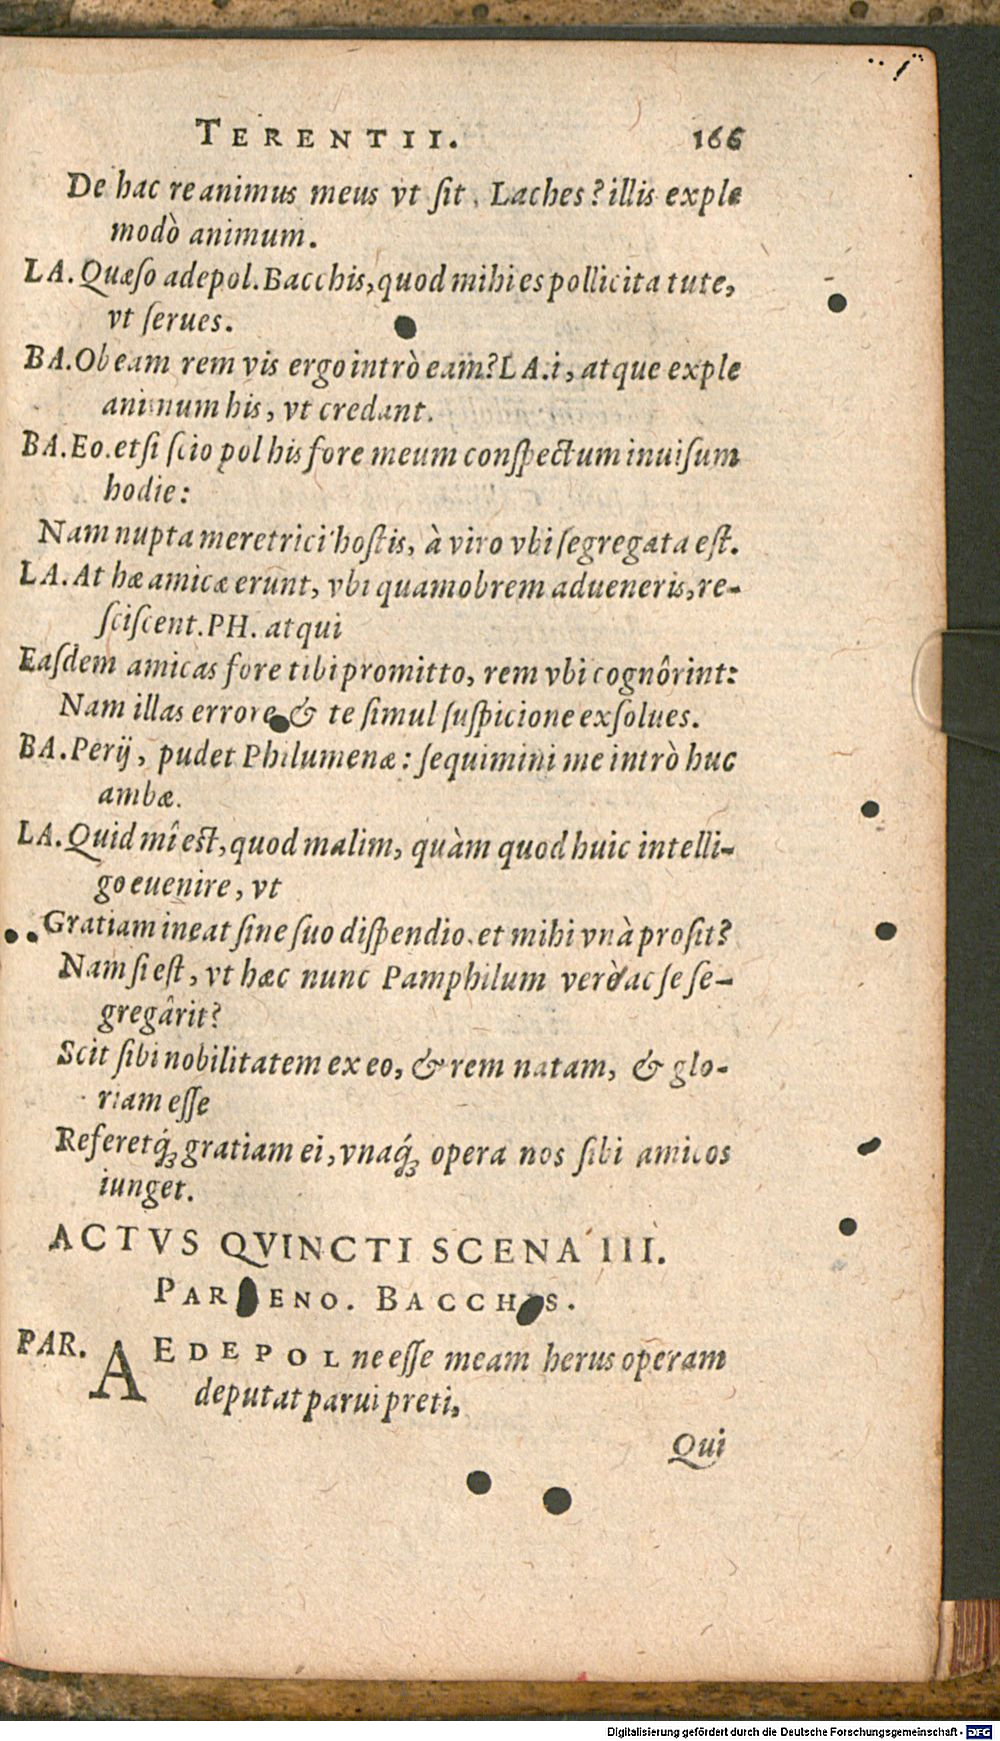 TERENTII. 166
De hac re animus meus vt ſit, Laches? illis exple
modò animum.
LA. Quæſo adepol. Bacchis, quod mihi es pollicita tute,
vt ſerues.
BA. Ob eam rem vis ergo intrò eam? LA. i, atque exple
animum his, vt credant.
BA. Eo. etſi ſcio pol his fore meum conſpectum inuiſum
hodie:
Nam nupta meretrici hoſtis, à viro vbi ſegregata eſt.
LA. At hæ amicæ erunt, vbi quamobrem adueneris, re-
ſciſcent. PH. atqui
Eaſdem amicas fore tibi promitto, rem vbi cognôrint:
Nam illas errore & te ſimul ſuſpicione exſolues.
BA. Perij, pudet Philumenæ: ſequimini me intrò huc
ambæ.
LA. Quid mî est, quod malim, quàm quod huic intelli-
go euenire, vt
Gratiam ineat ſine ſuo diſpendio. et mihi vnà proſit?
Nam ſi eſt, vt hæc nunc Pamphilum verò ac ſe ſe-
gregârit?
Scit ſibi nobilitatem ex eo, & rem natam, & glo-
riam eſſe
Referetq́; gratiam ei, vnaq́; opera nos ſibi amicos
iunget.
ACTVS QVINCTI SCENA III.
PARMENO. BACCHIS.
PAR. AEDEPOL ne eſſe meam herus operam
deputat parui preti,
Qui
Digitalisierung gefördert durch die Deutsche Forschungsgemeinschaft - DFG